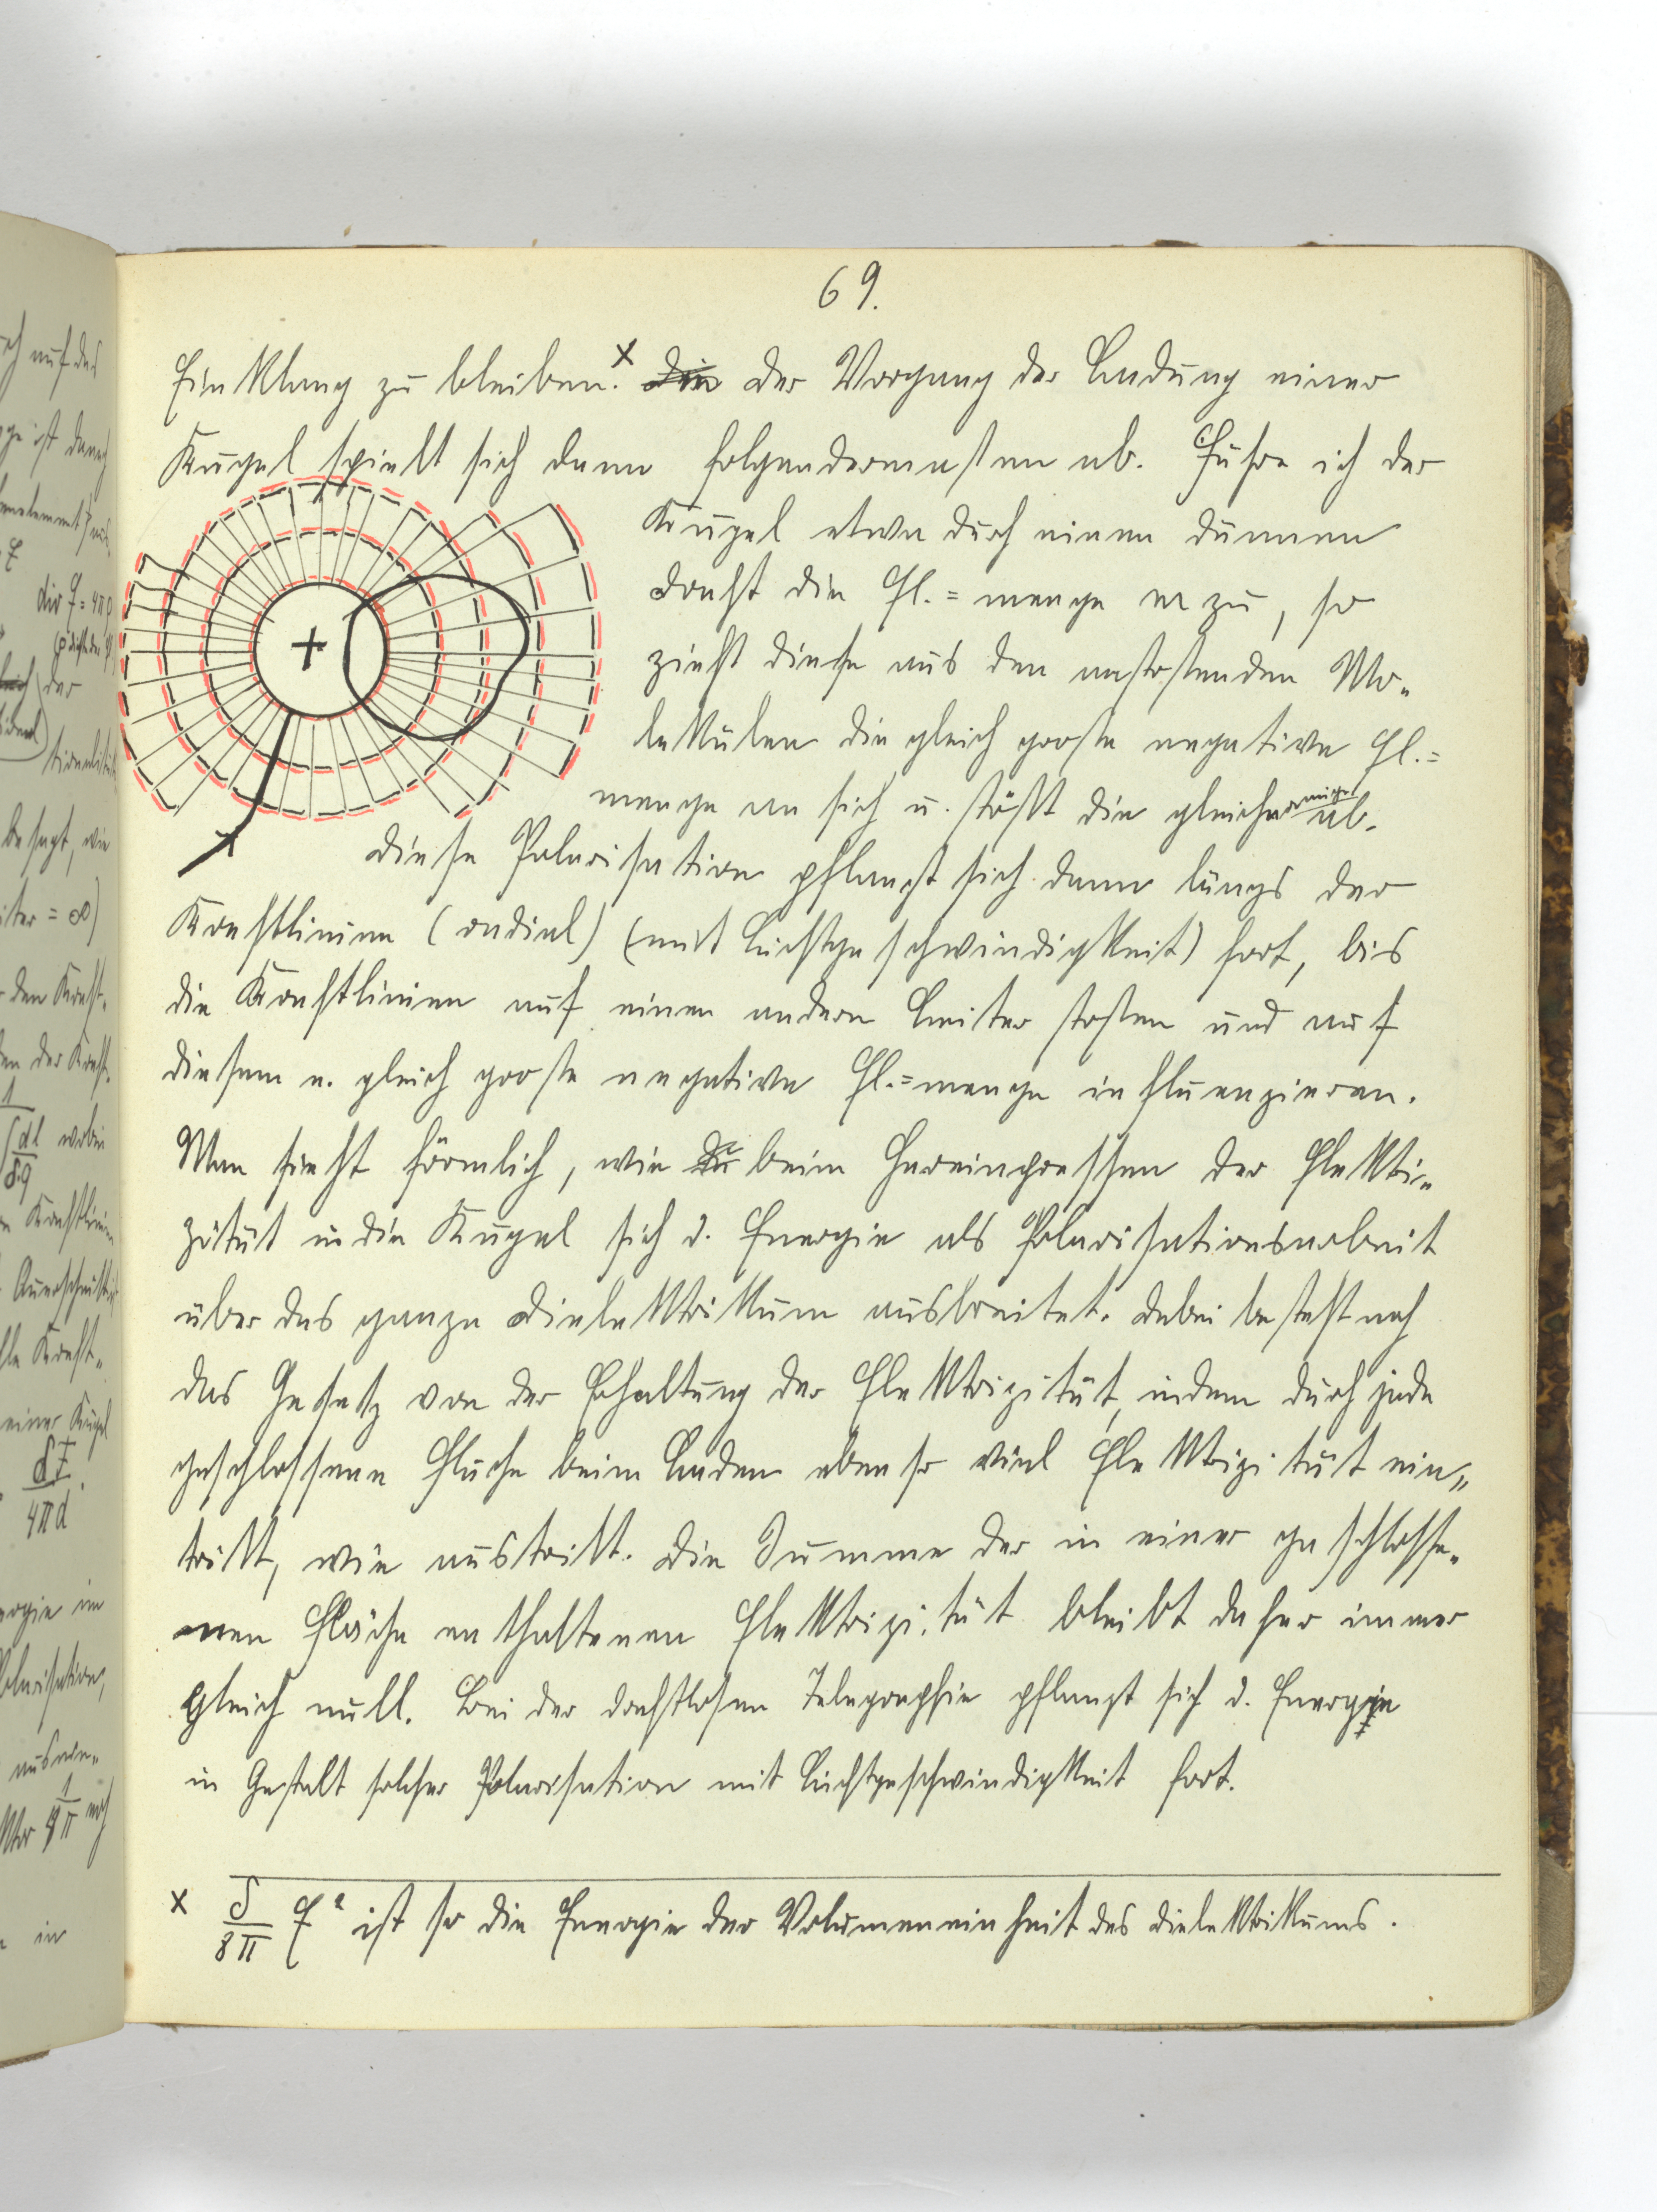 69.
Einklang zu bleiben.x die der Vorgang der Ladung einer
Kugel spielt sich dann folgendermassen ab. Führe ich der
Kugel etwa durch einen dünnen
Draht die El.=menge m zu, so
zieht diese aus den anstossenden Mo=
lekülen die gleich grosse negative El.=
menge an sich u. stösst die gleichnamige ab.
Diese Polarisation pflanzt sich dann längs der
Kraftlinien (radial) (mit Lichtgeschwindigkeit) fort, bis
die Kraftlinien auf einen andern Leiter stossen und auf
diesem e. gleich grosse negative El.=menge influenzieren.
Man sieht förmlich, wie beim Hereinpressen der Elektri=
zität in die Kugel sich d. Energie als Polarisationsarbeit
über das ganze Dielektrikum ausbreitet. Dabei besteht noch
das Gesetz von der Erhaltung der Elektrizität, indem durch jede
geschlossene Fläche beim Laden ebenso viel Elektrizität ein=
tritt, wie austritt. Die Summe der in einer geschlosse=
nen Fläche enthaltenen Elektrizität bleibt daher immer
gleich null. Bei der drahtlosen Telegraphie pflanzt sich d. Energie
in Gestalt solcher Polarisation mit Lichtgeschwindigkeit fort.
x δ/8π F² ist so die Energie der Volumeneinheit des Dielektrikums.